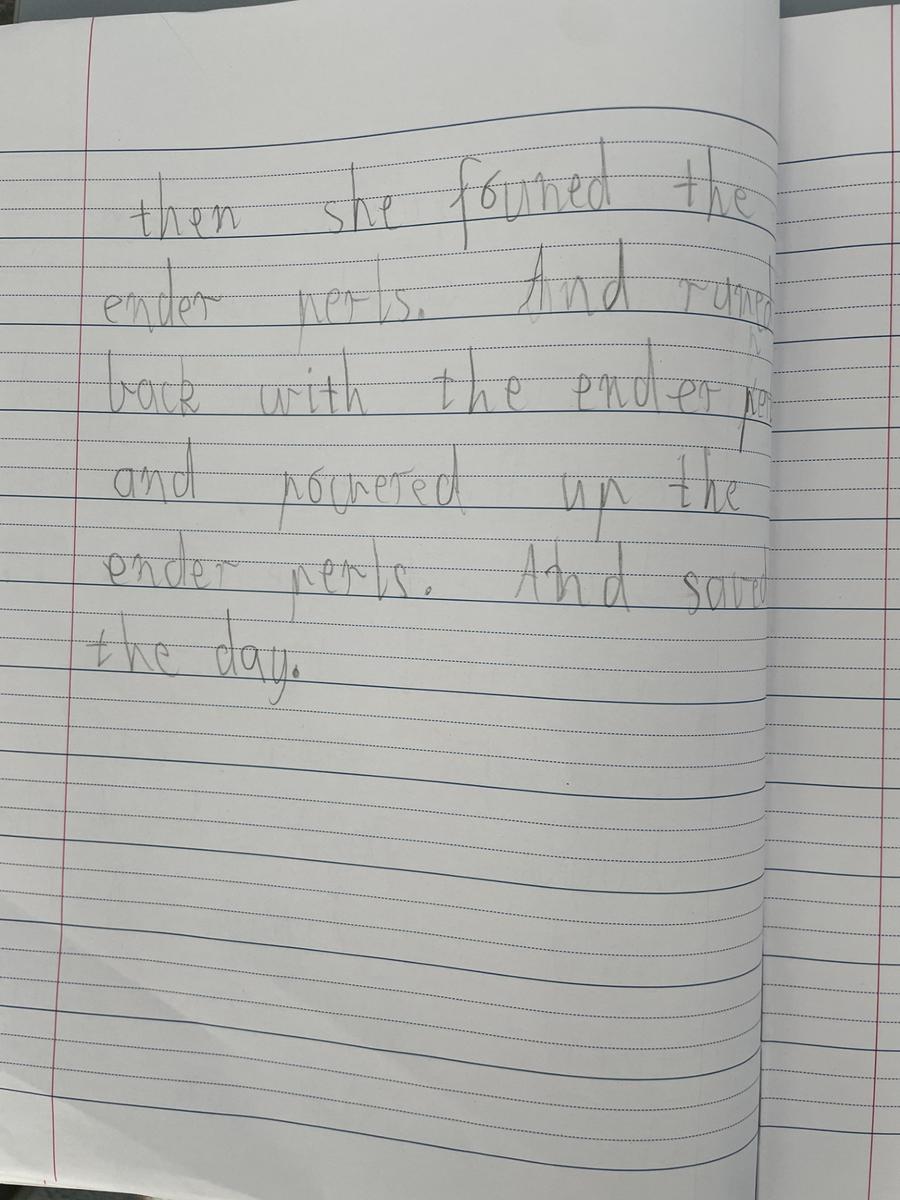 then she founed the
ender perls. And runed
back with the ender
and powered up the
ender perls. And saved
the day.